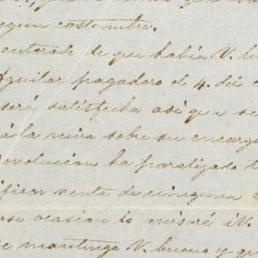 segun costumbre.
enterado de que habia V. li
Aguilar pagadero el 4. del c
será satisfecha asi que se
á la reina sobe su encargo
evolucion ha paralizado t
venta de ninguna
ocasion lo avisaré á V.
mantenga V. bueno y que